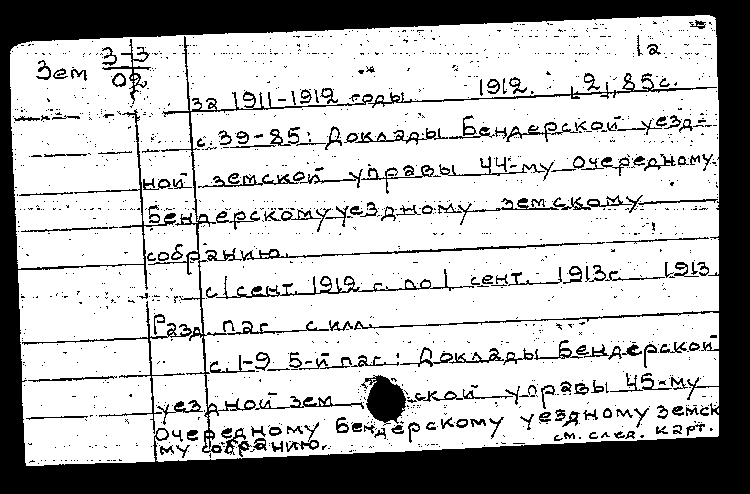 1а
Зем 3-3
02
за 1911-1912 годы. 1912. 85 с.
с. 39-85: Доклады Бендерской уезд-
ной земской управы 44-му очередному
Бендерскому уездному земскому
собранию.
с 1 сент. 1912 г. по 1 сент. 1913 г 1913.
Разд. паг с илл.
с. 1-9 5-й паг.: Доклады Бендерской
уездной земской управы 45-му
очередному Бендерскому уездному земск
му собранию. см. след. карт.